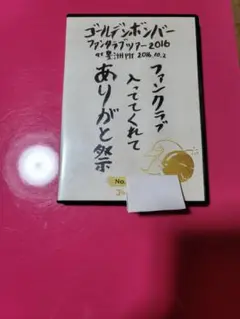 ゴールデンボンバー
ファンクラブツアー2016
at 豊洲PIT 2016.10.2
ファンクラブ
入っててくれて
ありがと祭
No.